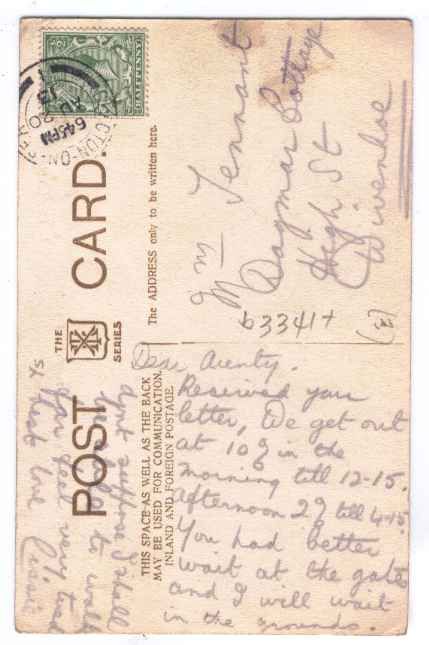 HALFPENNY
CLACTON-ON-SEA
6 45 PM
AU 20
13
POST CARD.
THE
SERIES
The ADDRESS only to be written here.
THIS SPACE AS WELL AS THE BACK
MAY BE USED FOR COMMUNICATION.
INLAND AND FOREIGN POSTAGE.
Mrs Tennant
Dagmar Cottage
High St
Wivenhoe
b3341+
Dear Aunty.
Received your
letter, We get out
at 10 in the
morning till 12-15.
afternoon 2 till 4-15
You had better
wait at the gate
and I will wait
in the grounds.
dont suppose I shall
to walk
far feel very tired
best love